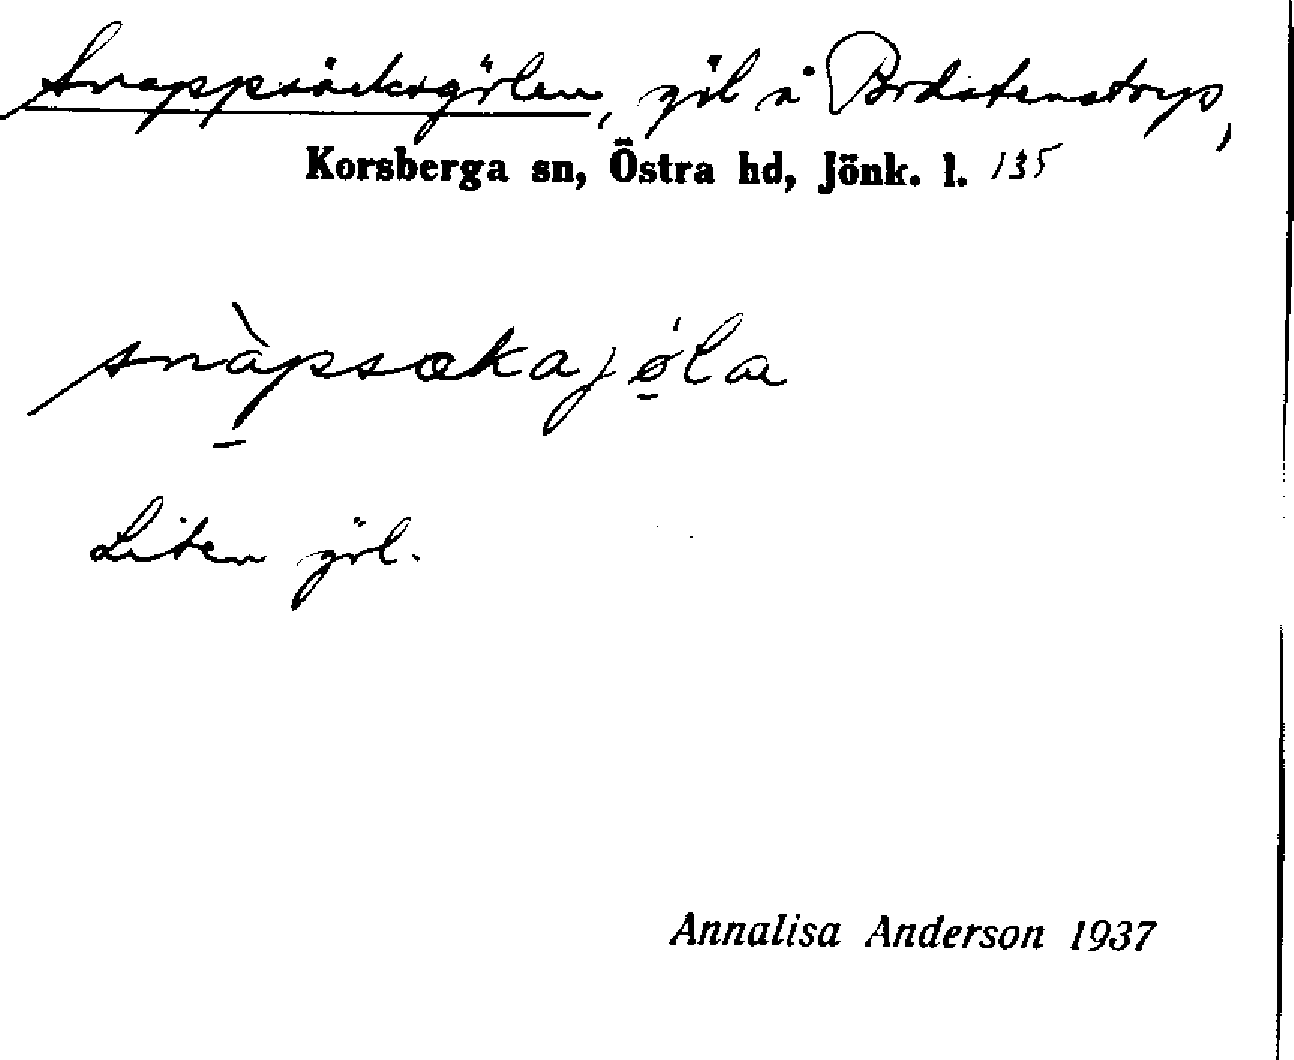 Snappsäcksgölen, göl å Brdstenstorp,
Korsberga sn, Östra hd, Jönk. l. 135
snàpsækajøla
Liten göl.
Annalisa Anderson 1937